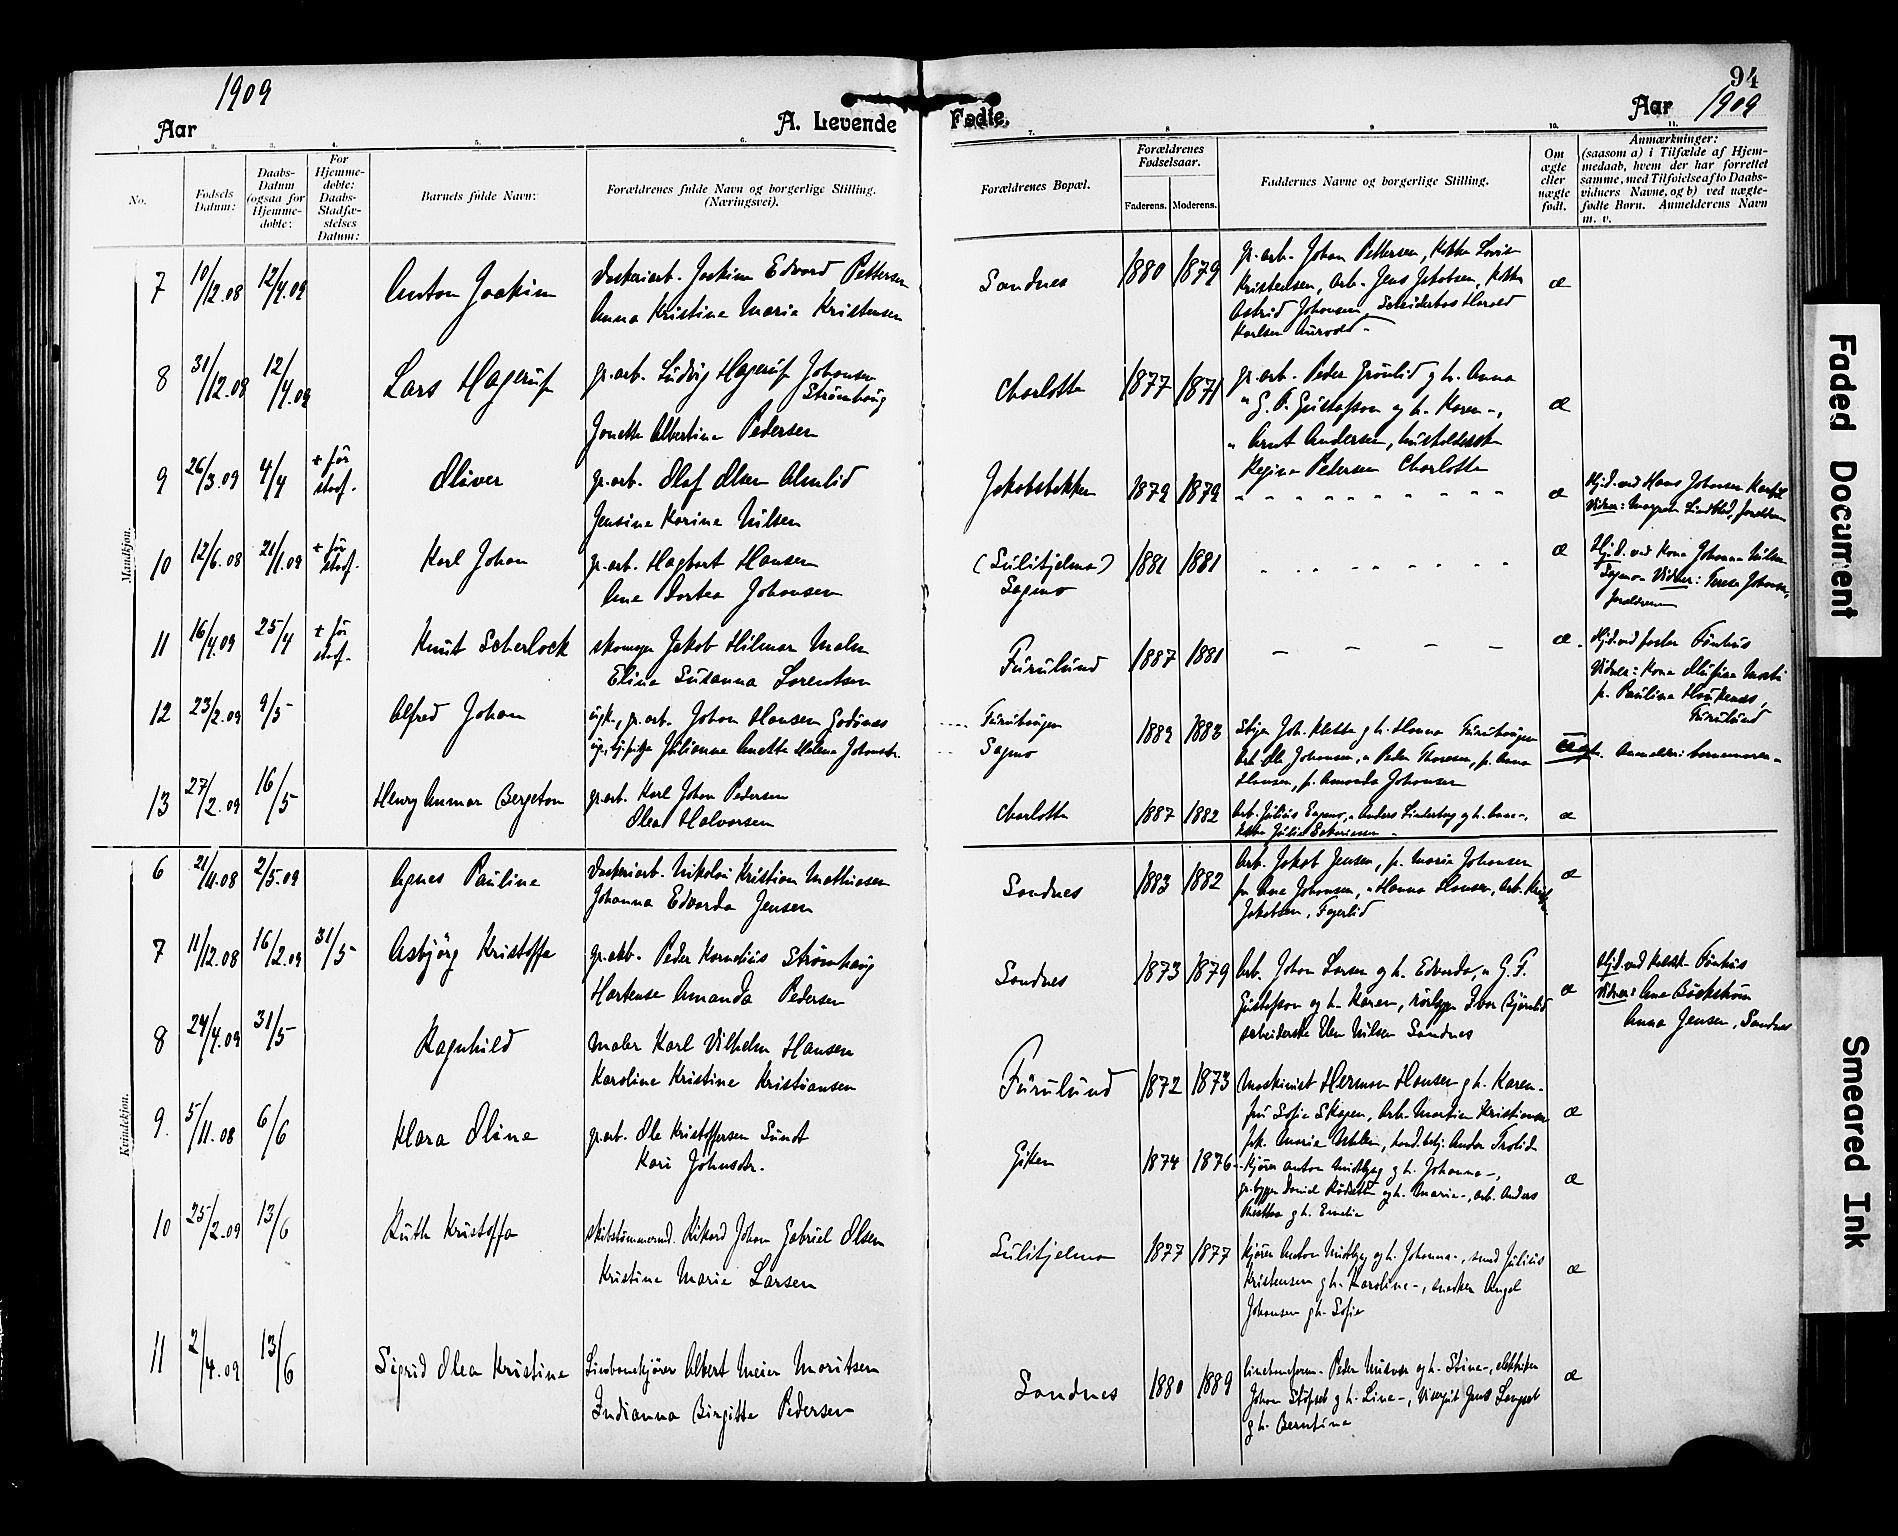 1909
Aar
A. Levende
Fødte.
Aar 1909
94
1.
2.
3.
4.
5.
6.
7.
8
9
10.
11.
No.
Fødsels
Datum:
Daabs-
Datum
(ogsaa for
Hjemme-
døbte:
For
Hjemme-
døbte:
Daabs-
Stadfæ-
stelses
Datum:
Barnets fulde Navn:
Forældrenes fulde Navn og borgerlige Stilling.
(Næringsvei).
Forældrenes Bopæl.
Forældrenes
Fødselsaar.
Faderens.
Moderens.
Faddernes Navne og borgerlige Stilling.
Om
ægte
eller
uægte
født.
Anmærkninger:
(saasom a) i Tilfælde af Hjem-
medaab, hvem der har forrettet
samme, med Tilføielse af to Daabs-
vidners Navne, og b) ved uægte-
fødte Børn. Anmelderens Navn
m. v.
Mandkjøn.
7 10/12.08 12/4.09 Anton Joakim
Joakim Edvard Pettersen
Anna Kristine Marie Kristensen
Sandnes 1880 1879
gr.arb. Johan Pettersen,
Kristensen, Arb. Jens Jakobsen,
Astrid Johansen, Harald
Karlsen
æ
8 31/12.08 12/4.09 Lars Hagerup
gr.arb. Ludvig Hagerup Johansen
Strømhaug
Jonette Albertine Pedersen
Charlotta 1877 1871
gr.arb. Peder Grønlid og h. Anna
" G. P. Gustafson og h. Karen -,
" Arnt Andersen,
Regine Petersen Charlotta
æ
9 26/3.09 4/4 + før
stadf.
Oliver
gr.arb. Olaf Olsen Almlid
Jensine Karine Nilsen
Jakobsbakken 1879 1879
" - - - - - - - - -
æ
Hj.d. ved Hans Johansen
Vidner: Margrete Lindblad, forældrene
10 12/6.08 21/1.09 + før
stadf.
Karl Johan
gr.arb. Hagbart Hansen
Ane Dortea Johansen
(Sulitjelma)
Sagmo
1881 1881
- - - - - - - -
æ
Hj.d. ved Kone Johanna Nilsen
Sagmo Vidner: Johansen,
forældrene
11 16/4.09 25/4 + før
stadf.
Knut Scherlock
skomager Jakob Hilmar Malm
Eline Susanna Lorentsen
Furulund 1887 1881
- - - -
æ.
Hj.d. ved pastor Fönhus
Vidner: Kone
p. Pauline
Furulund
12 23/2.09 9/5
Alfred Johan
ugk., gr.arb. Johan Hansen Godönes
Julianne Anette Helene Johansdr.
Furuhaugen
Sagmo
1882 1883
Stiger Joh. Klette og h. Hanna Furuhaugen
Arb. Ole Johansen, " Peder Thoresen, p. Anna
Hansen, p. Amanda Johansen
Uægte.
Anmelder: barnemoren
13 27/2.09 16/5
Henry Anmar Bergeton
gr.arb. Karl Johan Pedersen
Olea Halvorsen
Charlotta 1887 1882
Arb. Julius Sagmo, " Anders og h. Anne -,
Julie
æ
Kvindekjøn.
6 21/11.08 2/5.09 Agnes Pauline
Nikolai Kristian Mathiasen
Johanna Edvarda Jensen
Sandnes 1883 1882
Arb. Jakob Jensen, p. Marie Johansen
fru Ane Johansen, " Hanna Hansen, Arb.
Jakobsen, Fagerlid
æ
7 11/12.08 16/2.09 31/5
Asbjörg Kristoffa
gr.arb. Peder Kornelius Strømhaug
Hartense Amanda Pedersen
Sandnes 1873 1879
Arb. Johan Larsen og h. Edvarda, " G. P.
Gustafson og h. Karen, Ivar Bjørnlid
arbeiderske Elen Nilsen Sandnes
æ
Hj.d. ved Fönhus
Vidner: Ane Bäckström
Anna Jensen, Sandnes
8 24/4.09 31/5
Ragnhild
Maler Karl Vilhelm Hansen
Karoline Kristine Kristiansen
Furulund 1872 1873
Maskinist Herman Hansen og h. Karen -
fru Sofie Skagen, Arb. Martin Kristiansen
frk. Marie handl.betj. Ander
æ
9. 5/11.08 6/6
Klara Oline
gr.arb. Ole Kristoffersen Sundt
Kari Johnsdtr.
Giken 1874 1876
Kjører Anton Midtbye og h. Johanna -,
Daniel og h. Marie -, arb. Anders
og h. Emelie
æ
10 25/2.09 13/6
Ruth Kristoffa
skibstømmermd. Rikard Johan Gabriel Olsen
Kristine Marie Larsen
Sulitjelma 1877 1877
Kjører Anton Midtbye og h. Johanna -, smed Julius
Kristensen og h. Karoline -, snekker Angel
Johansen og h. Sofie
æ
11 2/4.09 13/6
Sigrid Olea Kristine
Linbanekjører Albert Meier Moritsen
Indianna Birgitte Pedersen
Sandnes 1880 1889
Peder og h. Stine -, elektriker
Johan og h. Line -, Jens
og h. Berntine
æ
Faded Document
Smeared Ink